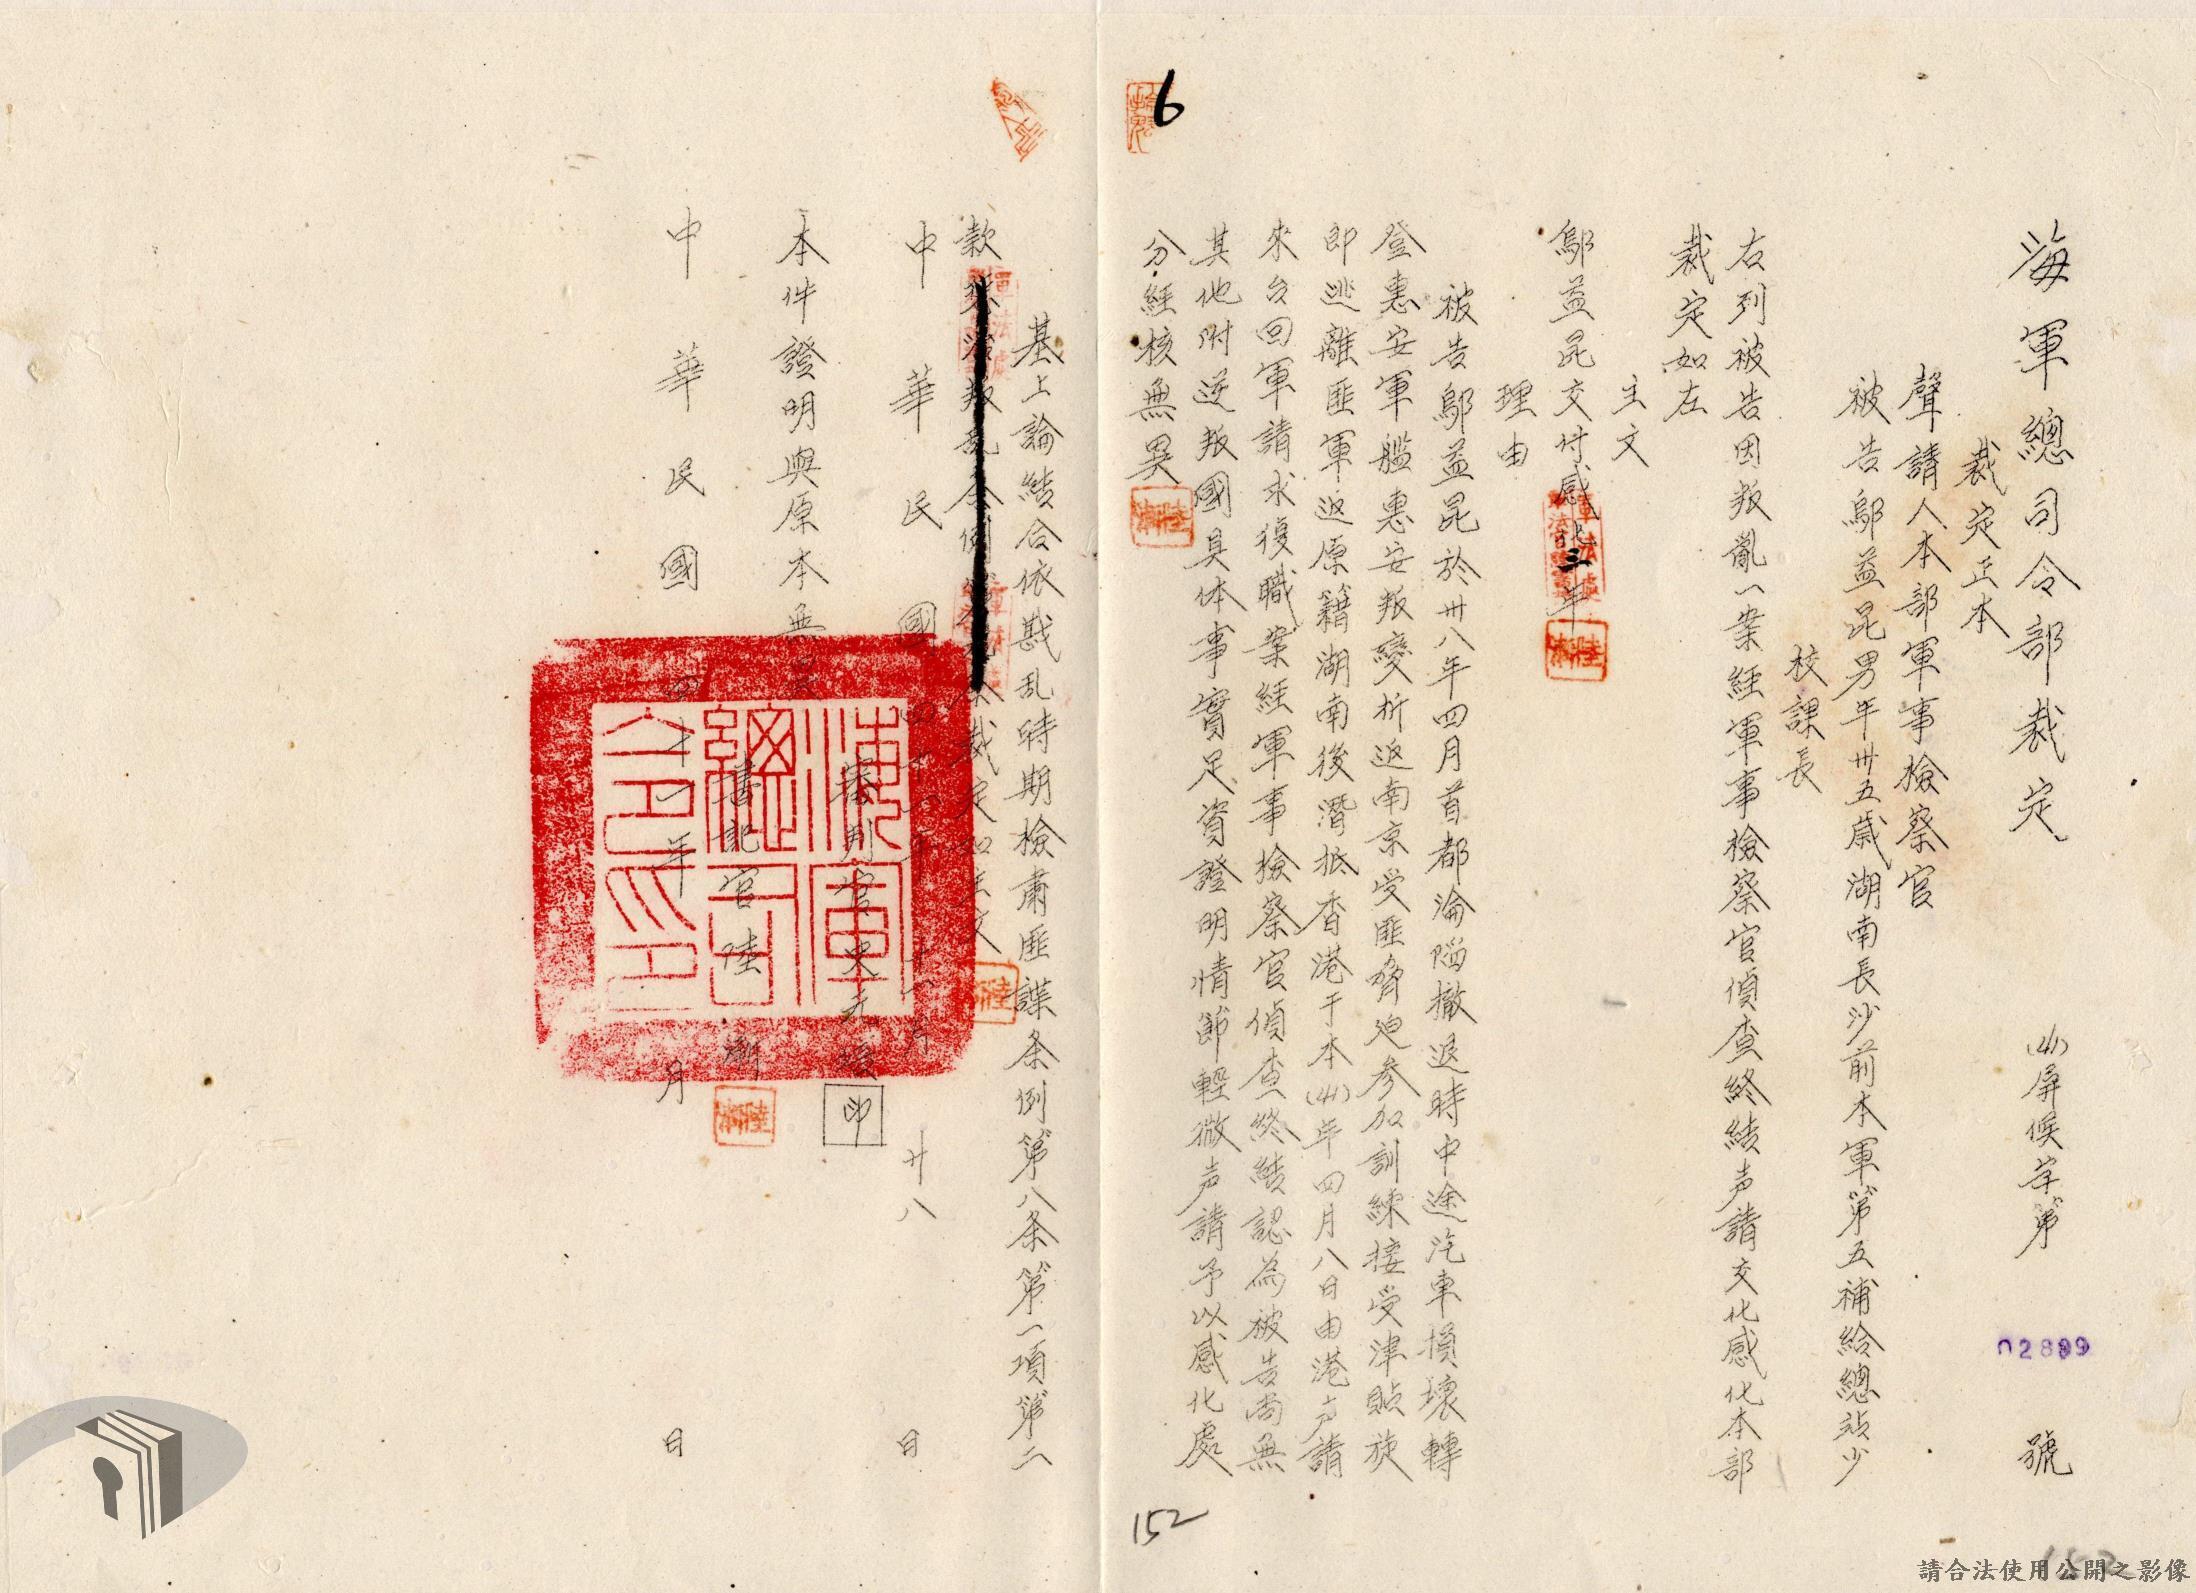 海軍總司令部裁定 (41)屏候字第02899號
裁定正本
聲請人本部軍事檢察官
被告鄔益昆男年卅五歲湖南長沙前本軍第五補給總站少
校課長
右列被告因叛亂一案經軍事檢察官偵查終結声請交化感化本部
裁定如左
主文
鄔益昆交付感化三年
理由
被告鄔益昆於卅八年四月首都淪陷撤退時中途汽車損壞轉
登惠安軍艦惠安叛變折返南京受匪脅迫參加訓練接受津貼旋
即逃離匪軍返原籍湖南後潛抵香港于本(41)年四月八日由港声請
來台回軍請求復職案經軍事檢察官偵查終結認為被告尚無
其他附逆叛國具体事實足資證明情節輕微声請予以感化處
分經核無異
基上論結合依戡乱時期檢肅匪諜条例第八条第一項第二
款 裁定如主文
中華民國四十一年十一月廿八日
審判官
本件證明與原本無異
書記官陸
中華民國四十一年 月 日
海軍總司令印
6
152
請合法使用公開之影像